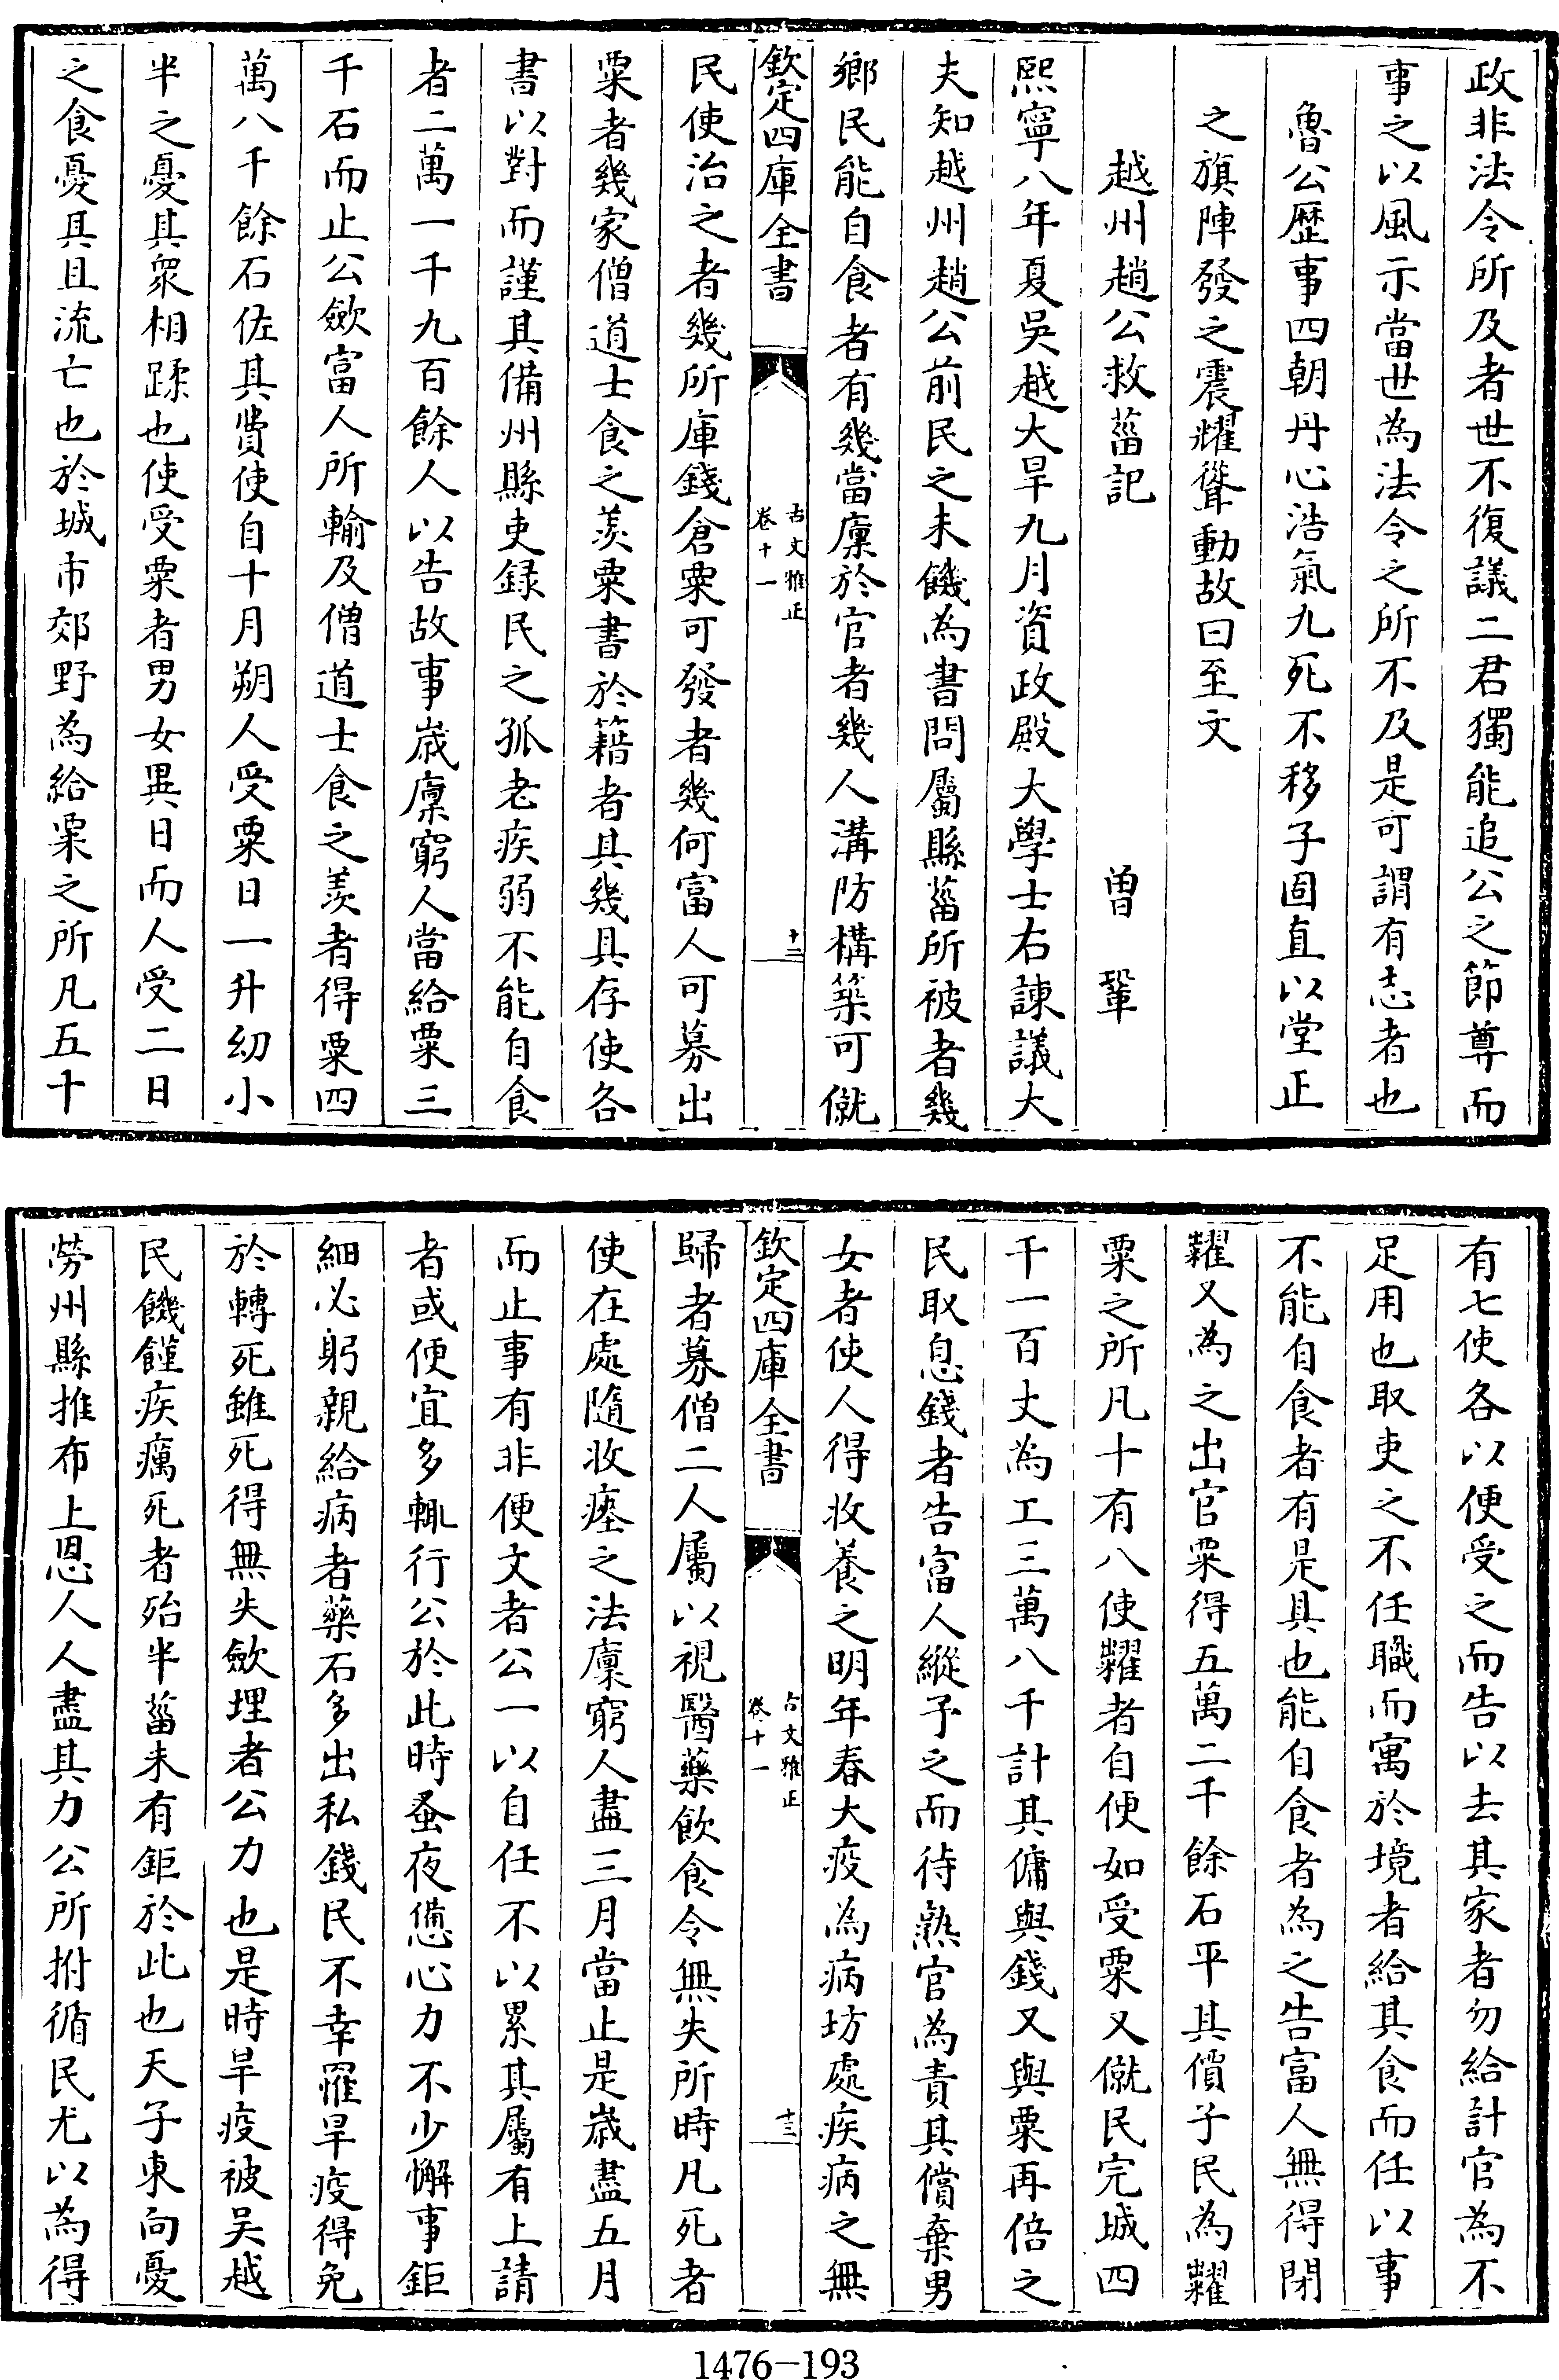 政非法令所及者世不復議二君獨能追公之節尊而
事之以風示當世為法令之所不及是可謂有志者也
魯公歷事四朝丹心浩氣九死不移子固直以堂正
之旗陣發之震耀聳動故曰至文
越州趙公救菑記
曾鞏
熙寧八年夏吳越大旱九月資政殿大學士右諫議大
夫知越州趙公前民之未饑為書問屬縣菑所被者幾
鄉民能自食者有幾當廩於官者幾人溝防構築可僦
欽定四庫全書
古文雅正
卷十一
十二
民使治之者幾所庫錢倉粟可發者幾何富人可募出
粟者幾家僧道士食之羨粟書於籍者其幾具存使各
書以對而謹其備州縣吏録民之孤老疾弱不能自食
者二萬一千九百餘人以告故事歲廩窮人當給粟三
千石而止公歛富人所輸及僧道士食之羨者得粟四
萬八千餘石佐其費使自十月朔人受粟日一升幼小
半之憂其衆相蹂也使受粟者男女異日而人受二日
之食憂具且流亡也於城市郊野為給粟之所凡五十
有七使各以便受之而告以去其家者勿給計官為不
足用也取吏之不任職而寓於境者給其食而任以事
不能自食者有是具也能自食者為之告富人無得閉
糶又為之出官粟得五萬二千餘石平其價予民為糶
粟之所凡十有八使糶者自便如受粟又僦民完城四
千一百丈為工三萬八千計其傭與錢又與粟再倍之
民取息錢者告富人縱予之而待熟官為責其償棄男
女者使人得收養之明年春大疫為病坊處疾病之無
欽定四庫全書
古文雅正
卷十一
十三
歸者募僧二人屬以視醫藥飲食令無失所時凡死者
使在處隨收瘞之法廩窮人盡三月當止是歲盡五月
而止事有非便文者公一以自任不以累其屬有上請
者或便宜多輒行公於此時蚤夜憊心力不少懈事鉅
細必躬親給病者藥石多出私錢民不幸罹旱疫得免
於轉死雖死得無失歛埋者公力也是時旱疫被吳越
民饑饉疾癘死者殆半菑未有鉅於此也天子東向憂
勞州縣推布上恩人人盡其力公所拊循民尤以為得
1476-193